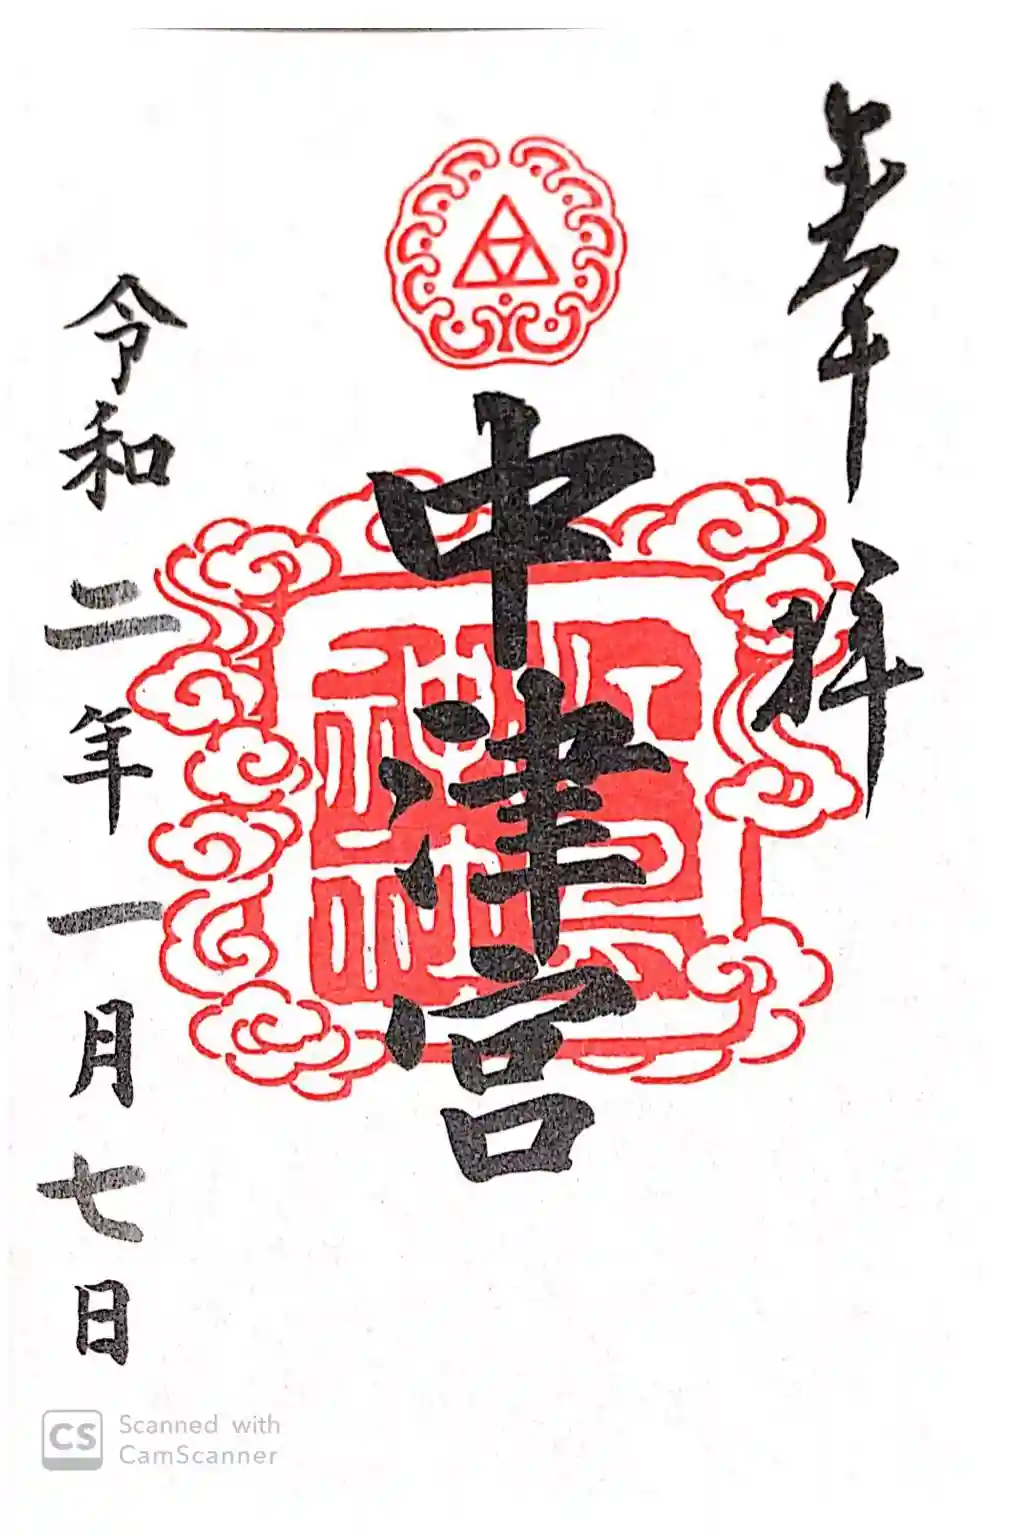 奉拝
中津宮
令和二年一月七日
Scanned with
CamScanner